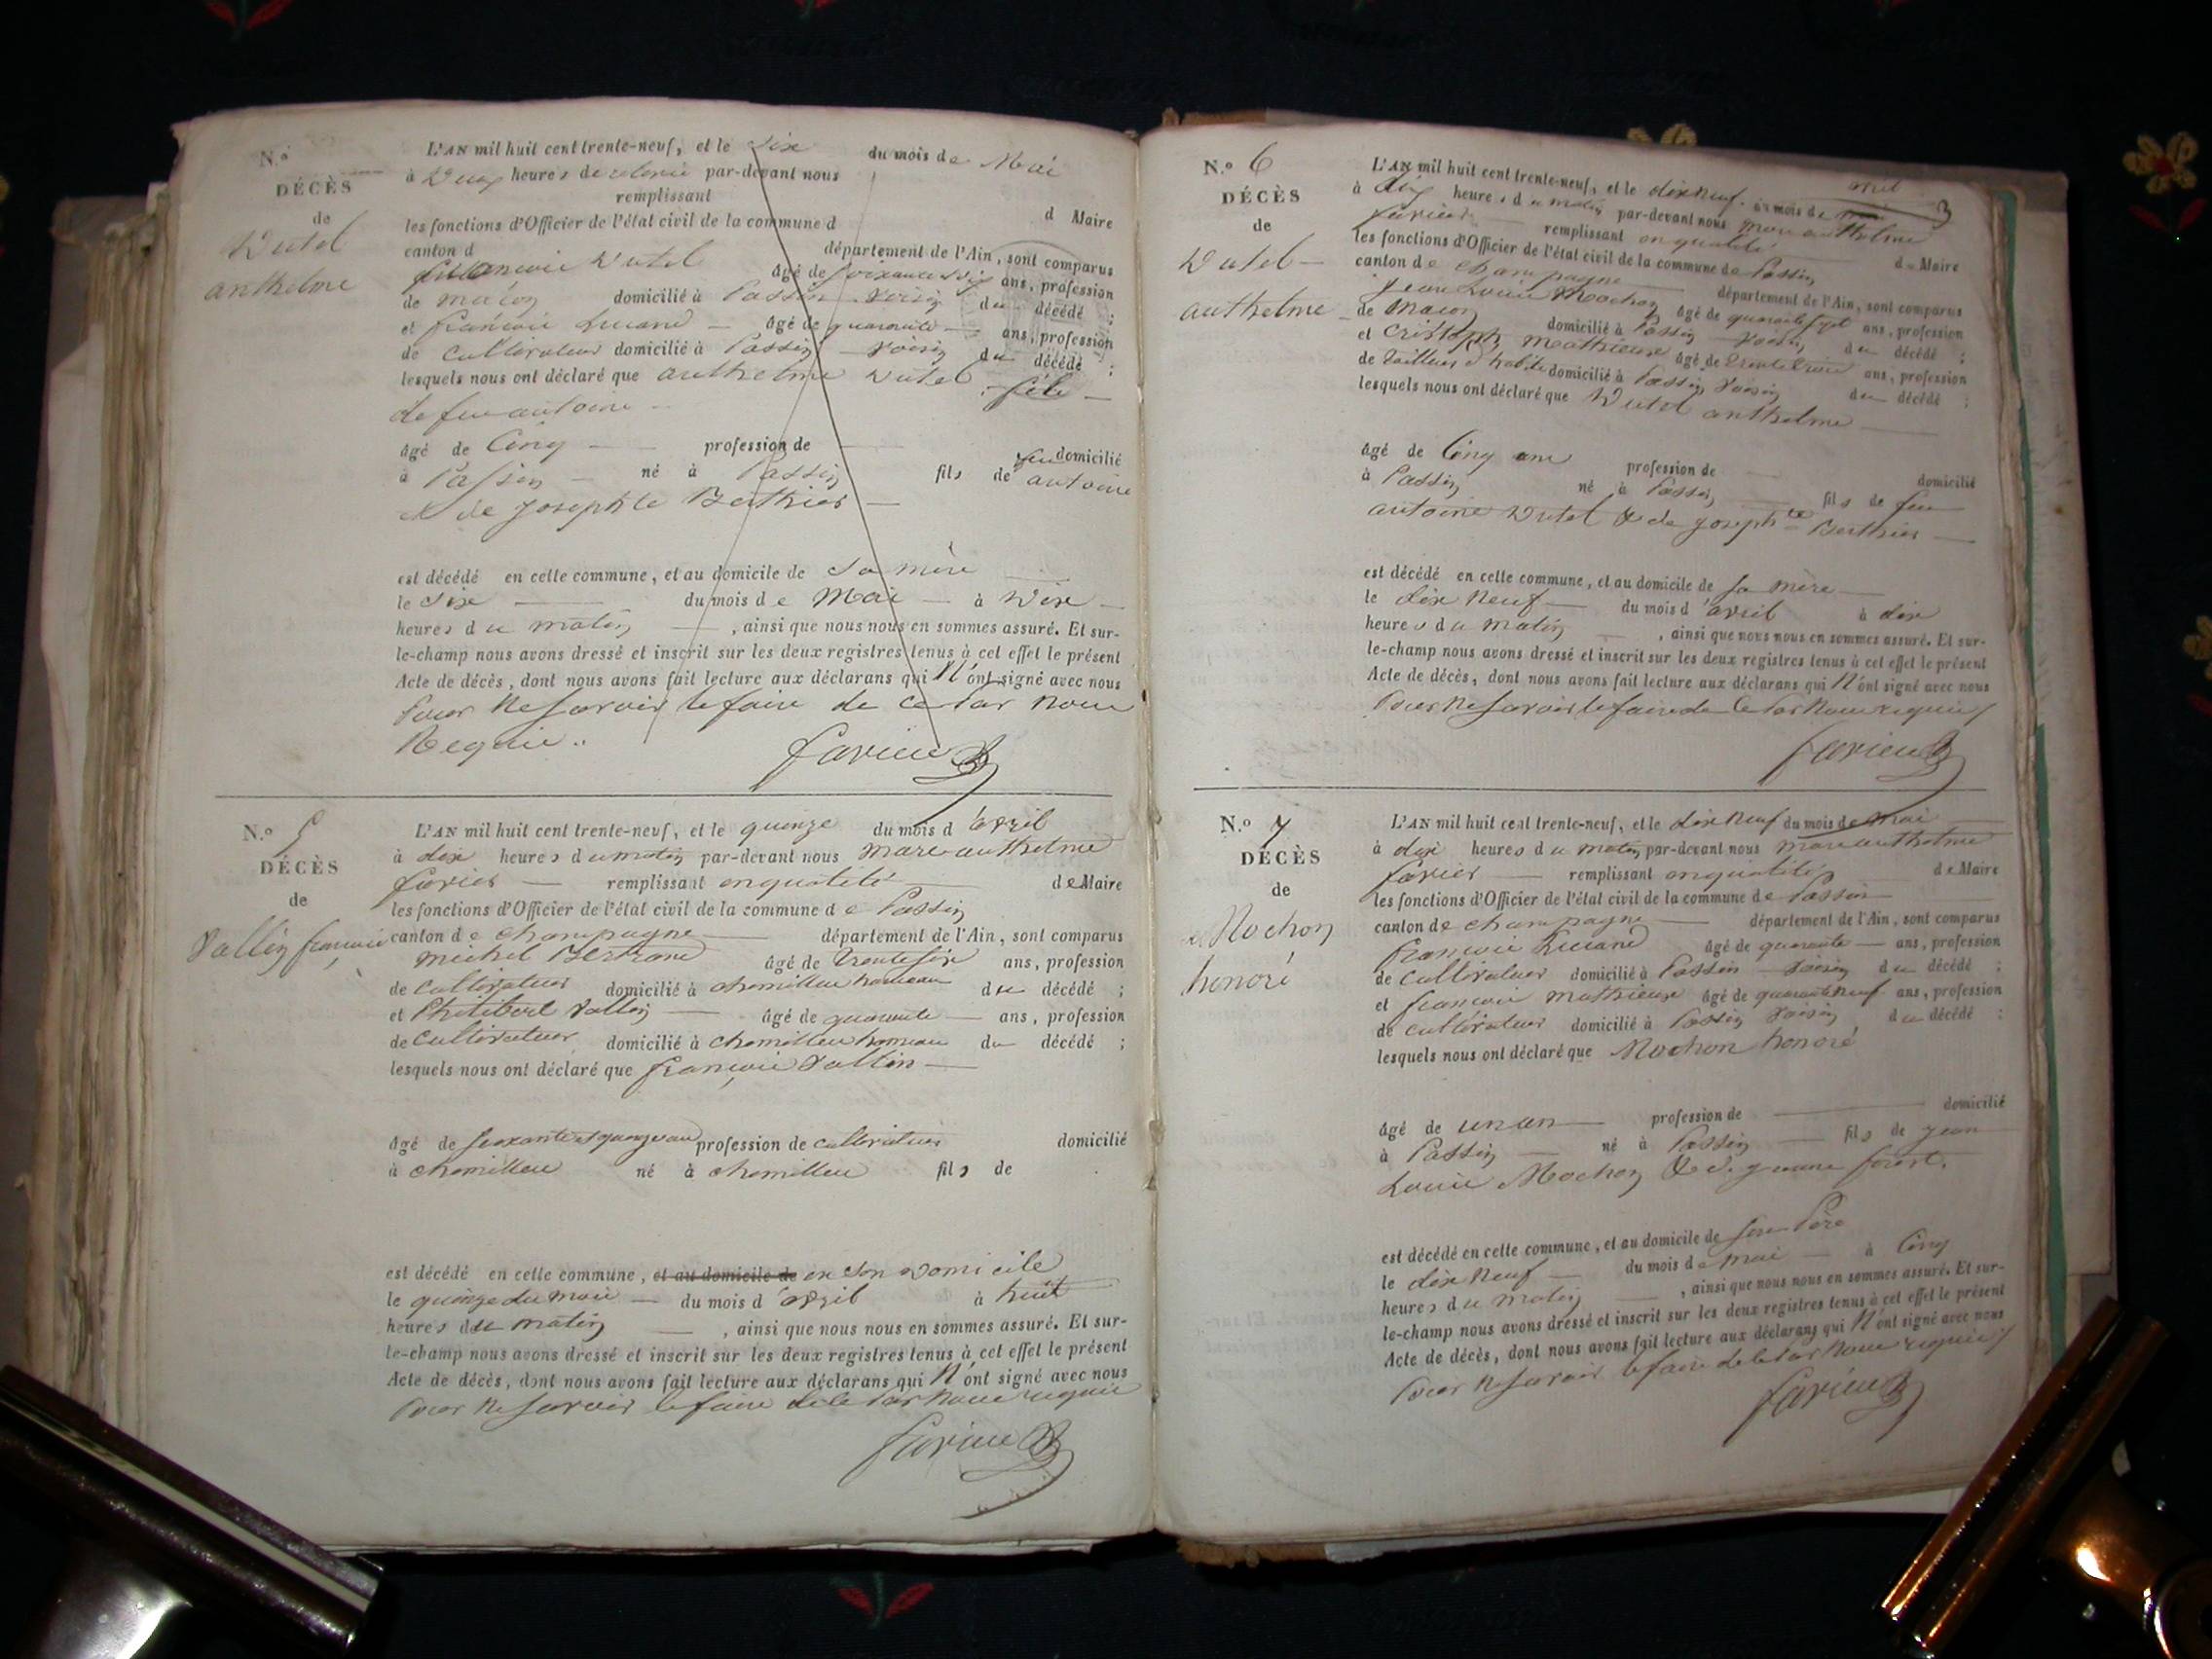 N.o
DÉCÈS
de
Dutel
anthelme
L'AN mil huit cent trente-neuf, et le Dix du mois de Mai
à Deux heures de relevée par-devant nous
remplissant d Maire
les fonctions d'Officier de l'état civil de la commune d
canton d département de l'Ain, sont comparus
françois Dutel âgé de soixante Dix ans, profession
de maçon domicilié à Passin Voisin du décédé ;
et françois Lucand âgé de quarante ans, profession
de Cultivateur domicilié à Passin Voisin du décédé ;
lesquels nous ont déclaré que anthelme Dutel fils
de feu antoine
âgé de Cinq profession de domicilié
à Passin né à Passin fils de feu antoine
et de Josephte Berthier
est décédé en cette commune, et au domicile de Sa mère
le Dix du mois de Mai à Dix
heures du matin , ainsi que nous nous en sommes assuré. Et sur-
le-champ nous avons dressé et inscrit sur les deux registres tenus à cet effet le présent
Acte de décès, dont nous avons fait lecture aux déclarans qui N'ont signé avec nous
Pour Ne Savoir le faire de ce Par Nous
Requis.
favier
N.o 5
DÉCÈS
de
Vallin françois
L'AN mil huit cent trente-neuf, et le quinze du mois d'avril
à dix heures du matin par-devant nous marc anthelme
favier remplissant en qualité de Maire
les fonctions d'Officier de l'état civil de la commune de Passin
canton de champagne département de l'Ain, sont comparus
michel Bertrand âgé de trente six ans, profession
de cultivateur domicilié à chemillieu hameau du décédé ;
et Philibert Vallin âgé de quarante ans, profession
de Cultivateur domicilié à chemillieu hameau du décédé ;
lesquels nous ont déclaré que françois Vallin
âgé de soixante et quinze ans profession de cultivateur domicilié
à chemillieu né à chemillieu fils de
est décédé en cette commune, et au domicile de en Son Domicile
le quinze du mois du mois d'avril à huit
heures du matin , ainsi que nous nous en sommes assuré. Et sur-
le-champ nous avons dressé et inscrit sur les deux registres tenus à cet effet le présent
Acte de décès, dont nous avons fait lecture aux déclarans qui N'ont signé avec nous
Pour Ne Savoir le faire de ce Par Nous requis
favier
N.o 6
DÉCÈS
de
Dutel
anthelme
3
L'AN mil huit cent trente-neuf, et le dix neuf du mois de avril
à dix heures du matin par-devant nous marc anthelme
favier remplissant en qualité de Maire
les fonctions d'Officier de l'état civil de la commune de Passin
canton de champagne département de l'Ain, sont comparus
Jean Louis Mochon âgé de quarante sept ans, profession
de Maçon domicilié à Passin Voisin du décédé ;
et Cristophe Mathieux âgé de trente trois ans, profession
de tailleur d'habits domicilié à Passin Voisin du décédé ;
lesquels nous ont déclaré que Dutel anthelme
âgé de Cinq ans profession de domicilié
à Passin né à Passin fils de feu
antoine Dutel & de josephte Berthier
est décédé en cette commune, et au domicile de Sa mère
le dix Neuf du mois d'avril à dix
heures du matin , ainsi que nous nous en sommes assuré. Et sur-
le-champ nous avons dressé et inscrit sur les deux registres tenus à cet effet le présent
Acte de décès, dont nous avons fait lecture aux déclarans qui N'ont signé avec nous
Pour Ne Savoir le faire de Ce Par Nous requis
favier
N.o 7
DÉCÈS
de
Mochon
honoré
L'AN mil huit cent trente-neuf, et le dix Neuf du mois de mai
à dix heures du matin par-devant nous marc anthelme
favier remplissant en qualité de Maire
les fonctions d'Officier de l'état civil de la commune de Passin
canton de champagne département de l'Ain, sont comparus
françois Lucand âgé de quarante ans, profession
de Cultivateur domicilié à Passin Voisin du décédé ;
et françois mathieux âgé de quarante neuf ans, profession
de cultivateur domicilié à Passin Voisin du décédé ;
lesquels nous ont déclaré que Mochon honoré
âgé de un an profession de domicilié
à Passin né à Passin fils de jean
Louis Mochon & de jeanne forest.
est décédé en cette commune, et au domicile de Son Père
le dix Neuf du mois de mai à Cinq
heures du matin , ainsi que nous nous en sommes assuré. Et sur-
le-champ nous avons dressé et inscrit sur les deux registres tenus à cet effet le présent
Acte de décès, dont nous avons fait lecture aux déclarans qui N'ont signé avec nous
Pour Ne Savoir le faire de Ce Par Nous requis
favier